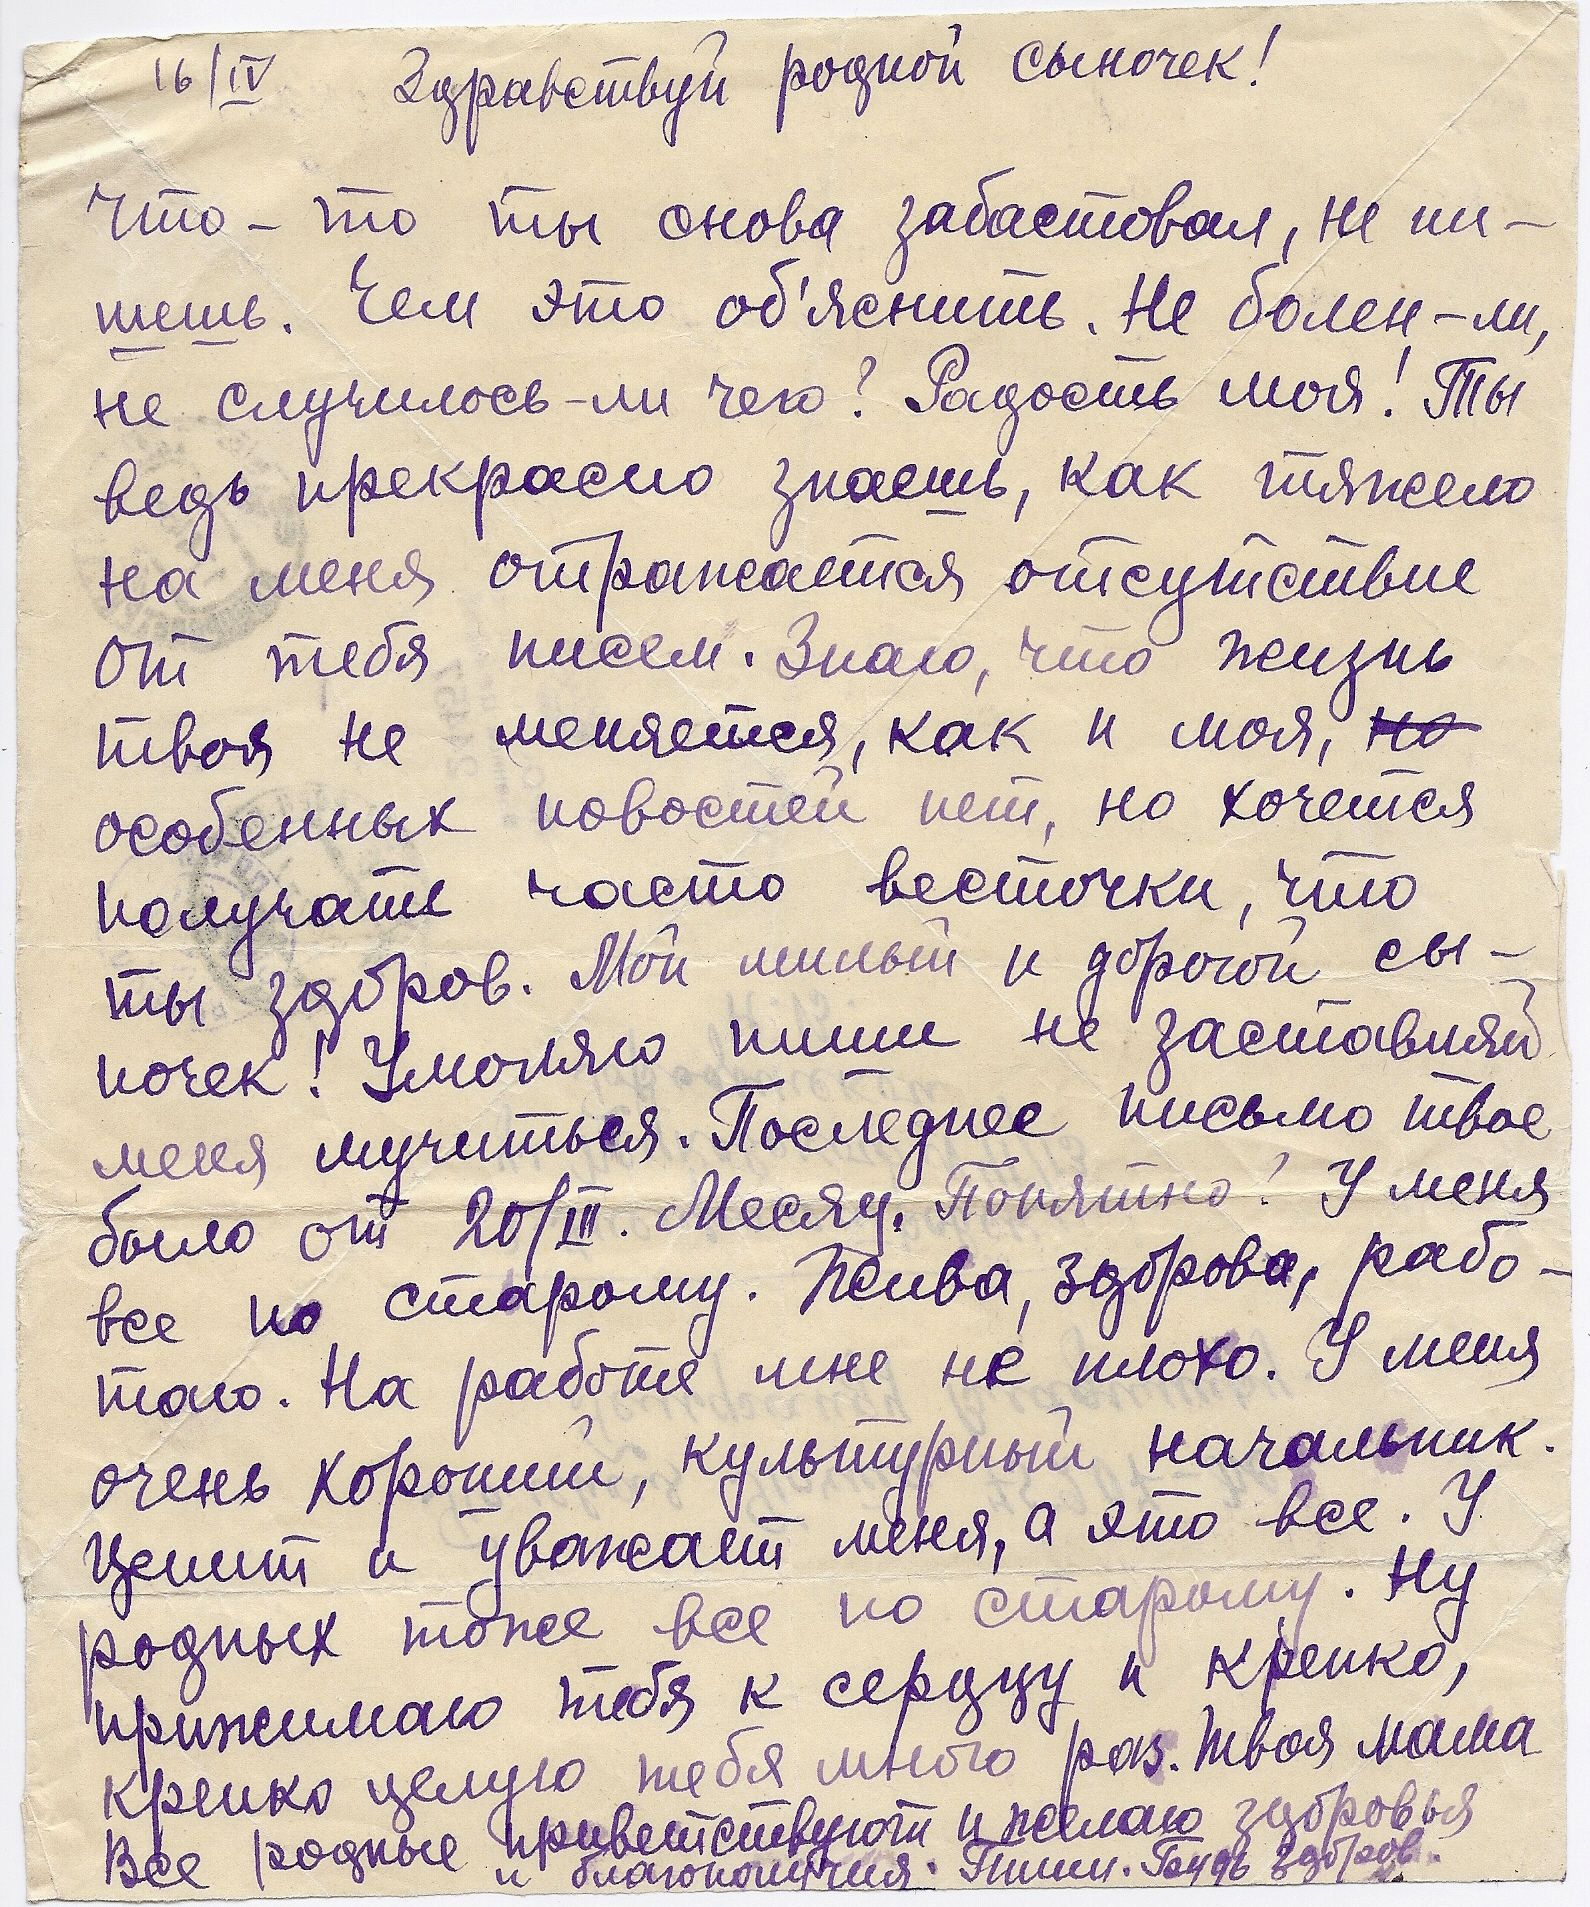 16/IV Здравствуй родной сыночек!
Что-то ты снова забастовал, не пи-
шешь. Чем это об'яснить. Не болен-ли,
не случилось-ли чего? Радость моя! Ты
ведь прекрасно знаешь, как тяжело
на меня отражается отсутствие
от тебя писем. Знаю, что жизнь
твоя не меняется, как и моя, но
особенных новостей нет, но хочется
получать часто весточки, что
ты здоров. Мой милый и дорогой сы-
ночек! Умоляю пиши не заставляй
меня мучиться. Последнее письмо твое
было от 20/III. Месяц. Понятно? У меня
все по старому. Жива, здорова, рабо-
таю. На работе мне не плохо. У меня
очень хороший, культурный начальник.
Ценит и уважает меня, а это все. У
родных тоже все по старому. Ну
прижимаю тебя к сердцу и крепко,
крепко целую тебя много раз. Твоя мама
Все родные приветствуют и желаю здоровья
и благополучия. Пиши. Будь здоров.